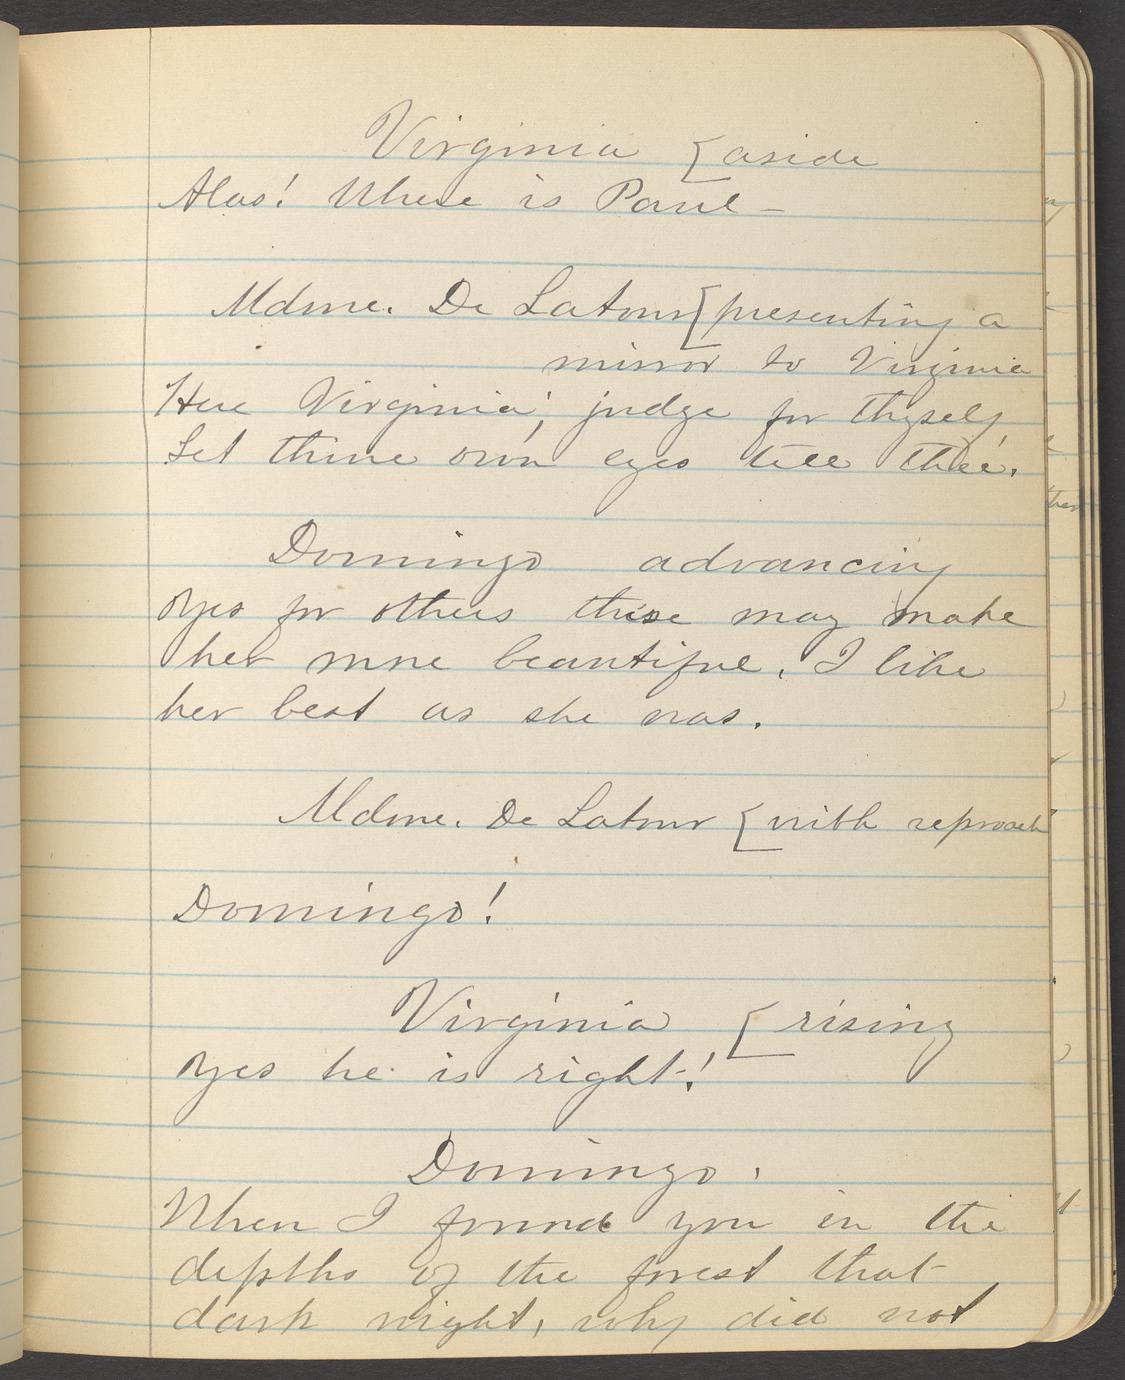 Virginia [aside
Alas! Where is Paul—
Mdme. De Latour [presenting a
mirror to Virginia
Here Virginia; judge for thyself
Let thine own eyes tell thee.
Domingo advancing
Yes for others these may make
her more beautiful. I like
her best as she was.
Mdme. De Latour [with reproach
Domingo!
Virginia [rising
Yes he is right!
Domingo.
When I found you in the
depths of the forest that
dark night, why did not